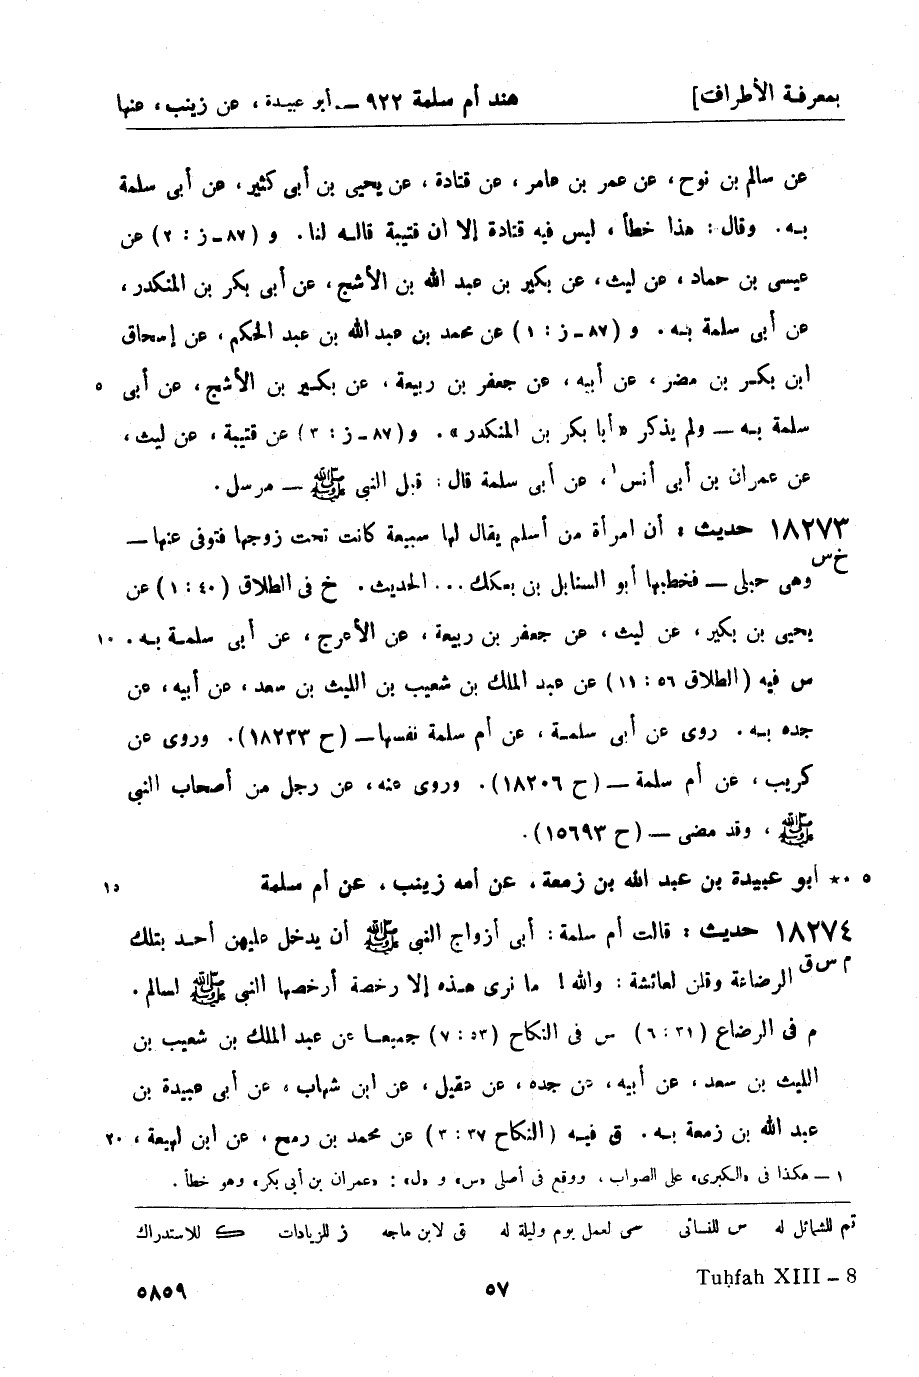 بمعرفة الأطراف] هند أم سلمة ٩٢٢ — أبو عبيدة ، عن زينب ، عنها
عن سالم بن نوح ، عن عمر بن عامر ، عن قتادة ، عن يحيى بن أبى كثير ، عن أبى سلمة
به . وقال : هذا خطأ ، ليس فيه قتادة إلا أن قتيبة قاله لنا . و (٨٧ـ ز : ٢) عن
عيسى بن حماد ، عن ليث ، عن بكير بن عبد الله بن الأشج ، عن أبى بكر بن المنكدر ،
عن أبى سلمة به . و (٨٧ـ ز : ١) عن محمد بن عبد الله بن عبد الحكم ، عن إسحاق
ابن بكر بن مضر ، عن أبيه ، عن جعفر بن ربيعة ، عن بكير بن الأشج ، عن أبى ٥
سلمة به — ولم يذكر «أبا بكر بن المنكدر» . و (٨٧ـ ز : ٣) عن قتيبة ، عن ليث ،
عن عمران بن أبى أنس ١ ، عن أبى سلمة قال : قبل النبى ﷺ — مرسل .
١٨٢٧٣ حديث : أن امرأة من أسلم يقال لها سبيعة كانت تحت زوجها فتوفى عنها —
خ س وهى حبلى — فخطبها أبو السنابل بن بعكك ... الحديث . خ فى الطلاق (٤٠ : ١) عن
يحيى بن بكير ، عن ليث ، عن جعفر بن ربيعة ، عن الأعرج ، عن أبى سلمة به . ١٠
س فيه (الطلاق ٥٦ : ١١) عن عبد الملك بن شعيب بن الليث بن سعد ، عن أبيه ، عن
جده به . روى عن أبى سلمة ، عن أم سلمة نفسها — (ح ١٨٢٣٣) . وروى عن
كريب ، عن أم سلمة — (ح ١٨٢٠٦) . وروى عنه ، عن رجل من أصحاب النبى
ﷺ ، وقد مضى — (ح ١٥٦٩٣) .
٥ ٠* أبو عبيدة بن عبد الله بن زمعة ، عن أمه زينب ، عن أم سلمة ١٥
١٨٢٧٤ حديث : قالت أم سلمة : أبى أزواج النبى ﷺ أن يدخل عليهن أحد بتلك
م س ق الرضاعة وقلن لعائشة : والله ! ما نرى هذه إلا رخصة أرخصها النبى ﷺ لسالم .
م فى الرضاع (٣١ : ٦) س فى النكاح (٥٣ : ٧) جميعا عن عبد الملك بن شعيب بن
الليث بن سعد ، عن أبيه ، عن جده ، عن عقيل ، عن ابن شهاب ، عن أبى عبيدة بن
عبد الله بن زمعة به . ق فيه (النكاح ٣٧ : ٣) عن محمد بن رمح ، عن ابن لهيعة ، ٢٠
١ — هكذا فى «الكبرى» على الصواب ، ووقع فى أصلى «س» و «ل» : «عمران بن أبى بكر» وهو خطأ .
تم للشمائل له س للنسائى سى لعمل يوم وليلة له ق لابن ماجه ز للزيادات ك للاستدراك
Tuḥfah XIII – 8
٥٧
٥٨٥٩